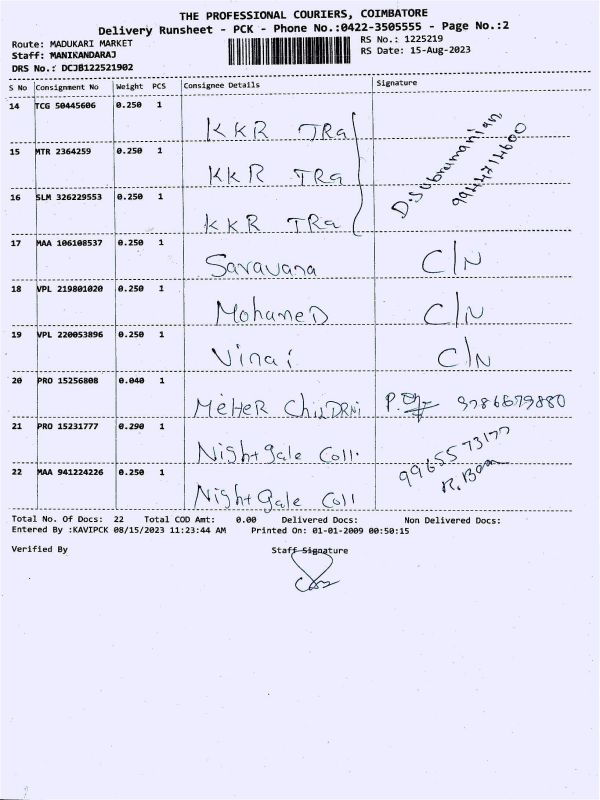 THE PROFESSIONAL COURIERS, COIMBATORE
Delivery Runsheet - PCK - Phone No.:0422-3505555 - Page No.:2
Route: MADUKARI MARKET RS No.: 1225219
Staff: MANIKANDARAJ RS Date: 15-Aug-2023
DRS No.: DCJB122521902
S No Consignment No Weight PCS Consignee Details Signature
14 TCG 50445606 0.250 1 KKR TRa
15 MTR 2364259 0.250 1 KKR TRa D.Subramanian
16 SLM 326229553 0.250 1 KKR TRa
17 MAA 106108537 0.250 1 Saravana C/N
18 VPL 219801020 0.250 1 MohameD C/N
19 VPL 220053896 0.250 1 Vinai C/N
20 PRO 15256808 0.040 1 MeHeR ChilDRNi 9786679880
21 PRO 15231777 0.290 1 Nightgale Coll. 9965573177
22 MAA 941224226 0.250 1 Nightgale Coll
Total No. Of Docs: 22 Total COD Amt: 0.00 Delivered Docs: Non Delivered Docs:
Entered By :KAVIPCK 08/15/2023 11:23:44 AM Printed On: 01-01-2009 00:50:15
Verified By Staff Signature